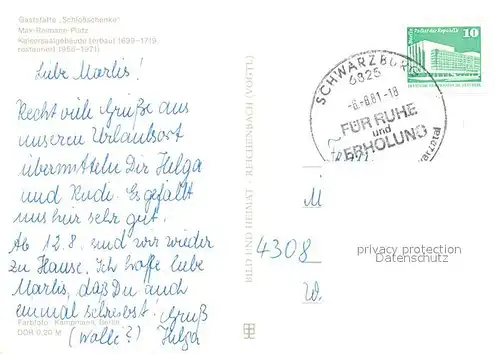 Gaststätte „Schloßschenke"
Max-Reimann Platz
Kaisersaalgebäude (erbaut 1699-1719,
restauriert 1956-1971)
Liebe Marlis!
Recht viele Grüße aus
unseren Urlaubsort
übermitteln Dir Helga
und Rudi. Es gefällt
uns hier sehr gut.
Ab 12.8. sind wir wieder
zu Hause. Ich hoffe liebe
Marlis, daß Du auch
einmal schreibst! Gruß
(Wolle?) Helga
Farbfoto: Kampmann, Berlin
DDR 0,20 M
BILD UND HEIMAT · REICHENBACH (VOGTL)
Palast der Republik
10
SCHWARZBURG
6825
-6.-8.81-18
FÜR RUHE
und
ERHOLUNG
M
4308
W.
privacy protection
Datenschutz